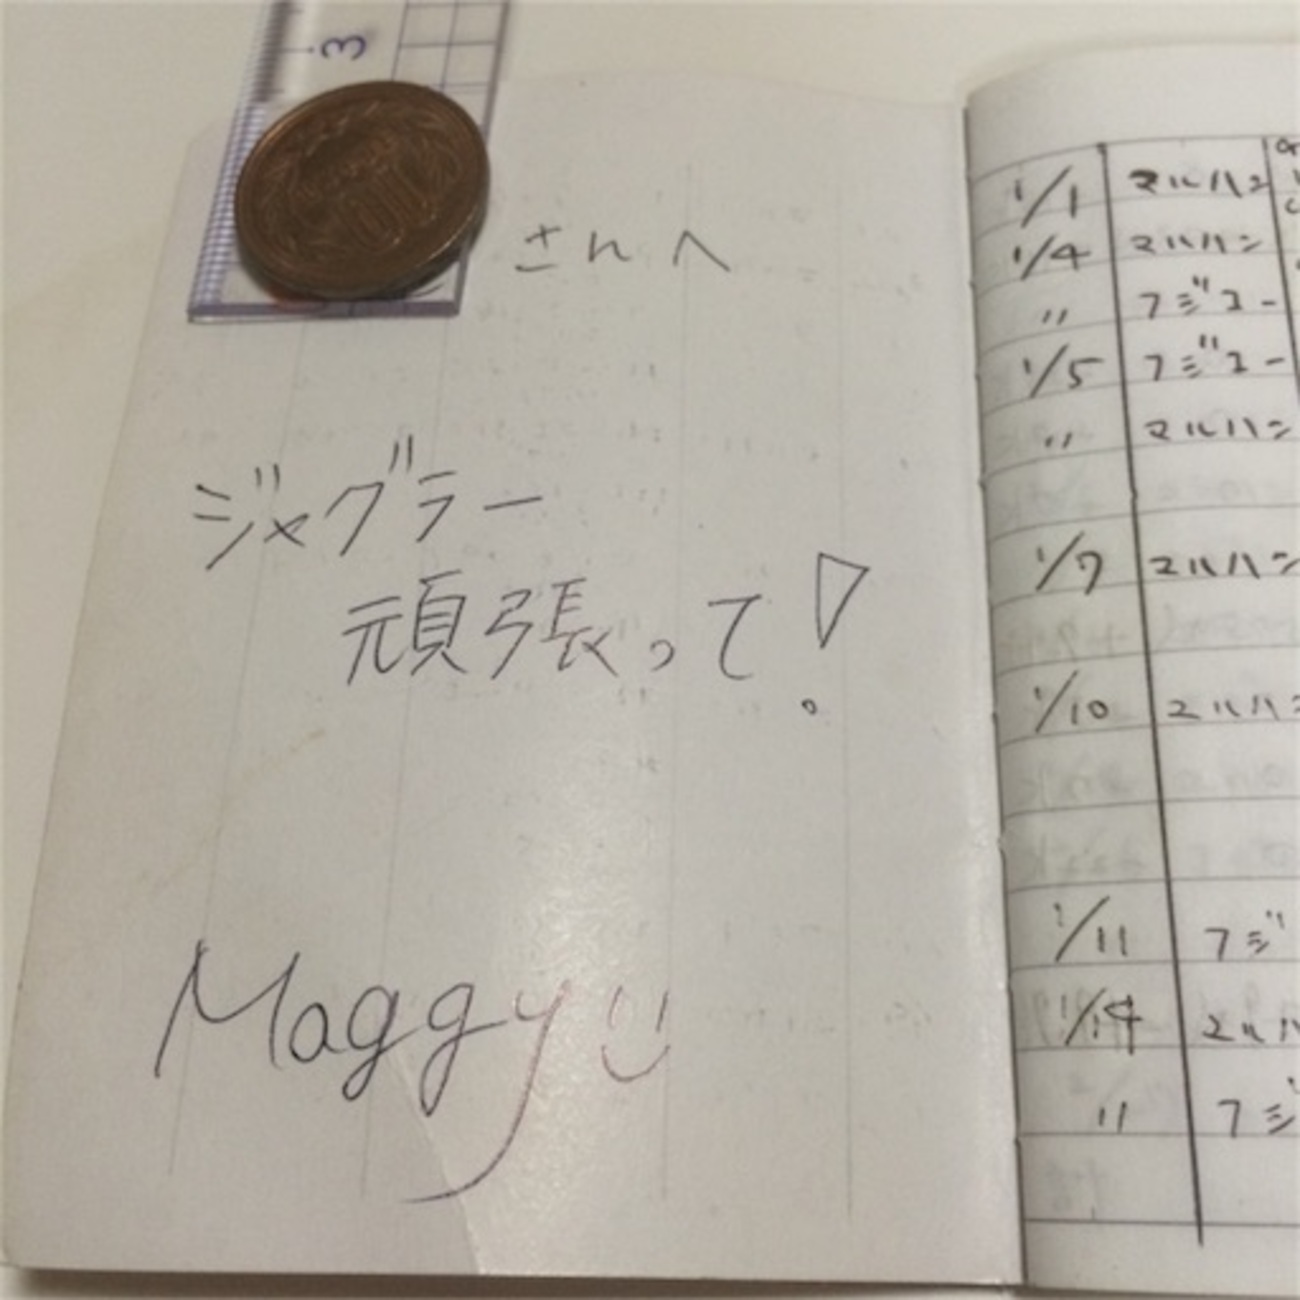 3
10
さんへ
ジャグラー
頑張って!
Maggy
1/1 マルハン
1/4 マルハン
〃 フジコー
1/5 フジコー
〃 マルハン
1/7 マルハン
1/10 マルハン
1/11 フジ
1/14 マルハ
〃 フジ